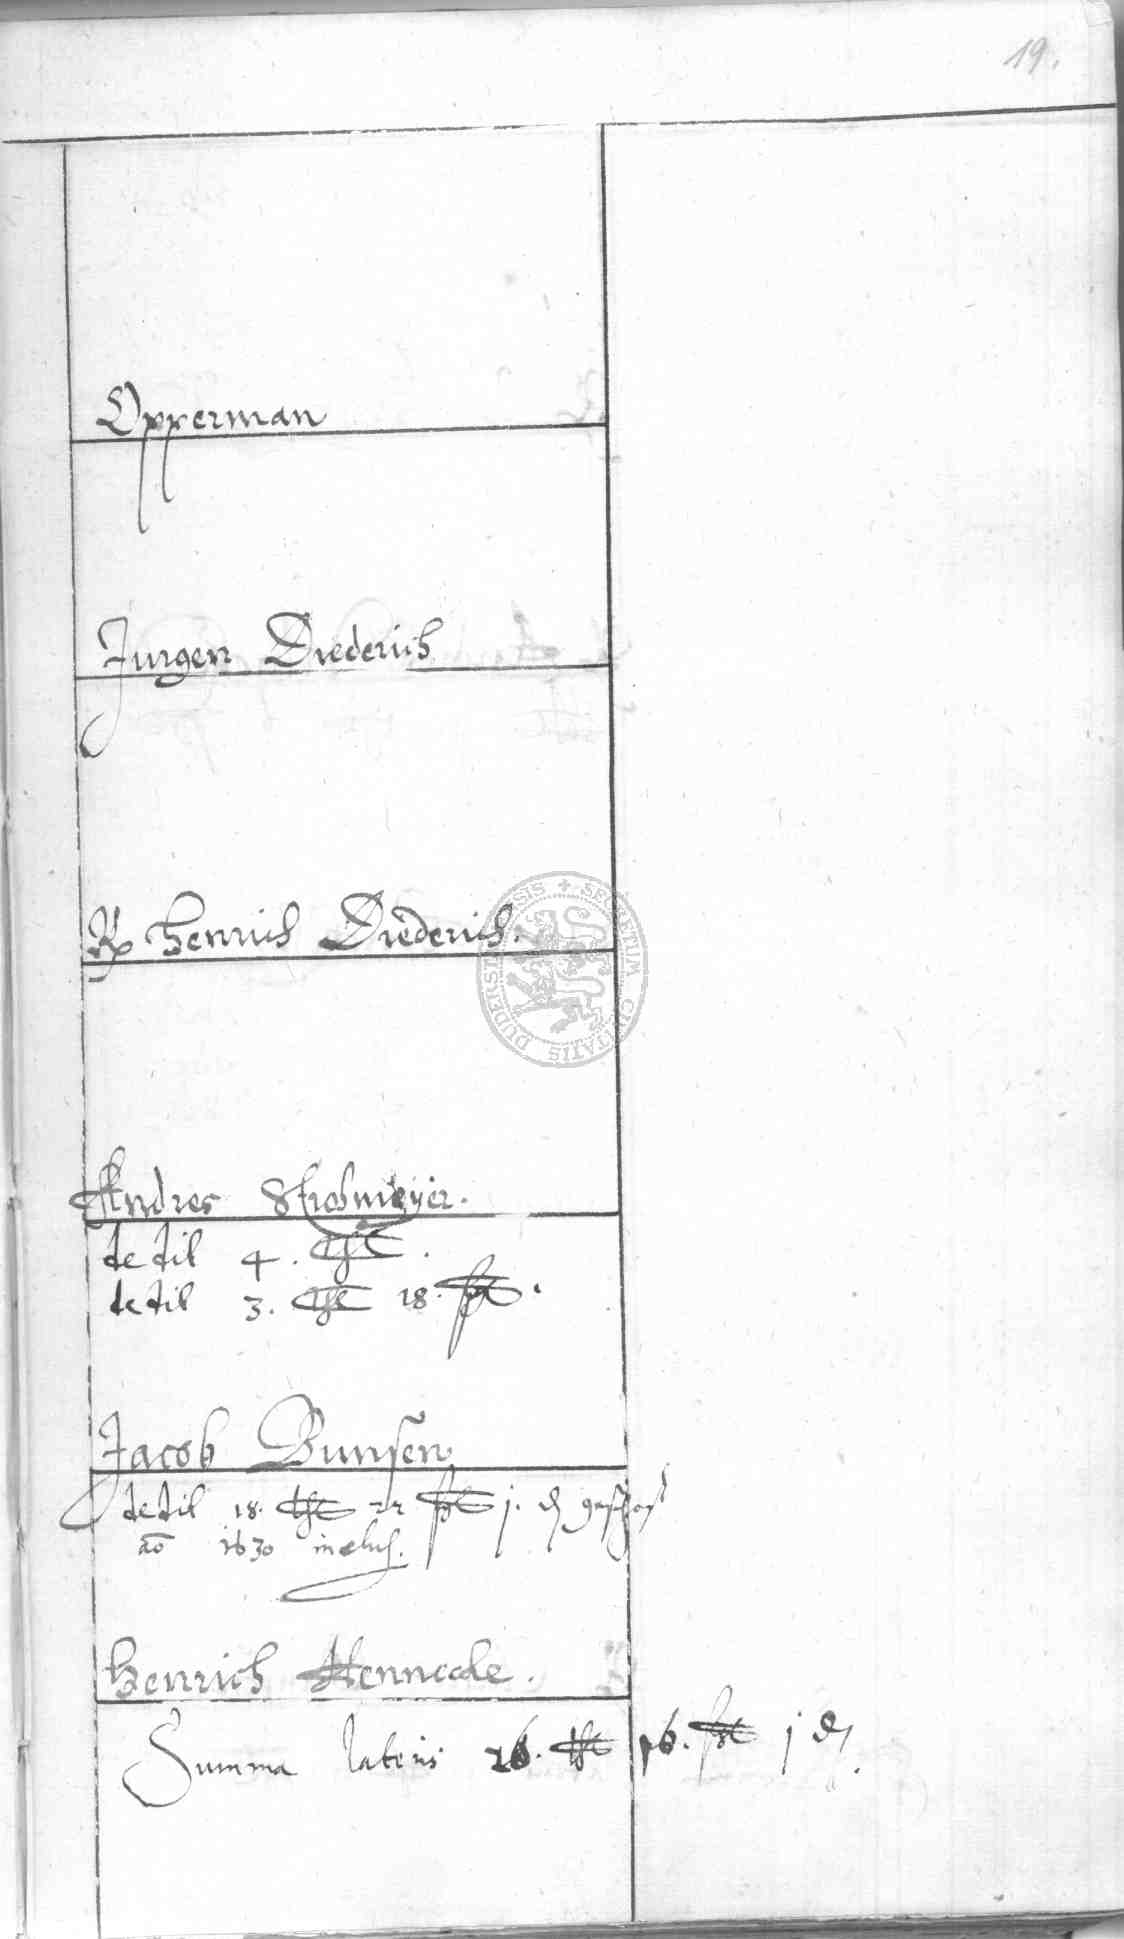 19.
Opperman
Jurgen Diederich
Henrich Diederich.
Andres Strohmeyer.
dedit 4. thl.
dedit 3. thl 18. ßl.
Jacob Bunsen
dedit 18. thl 22 ßl j. ₰ geschos
ao 1630 inclus.
Henrich Hennecke.
Summa lateris 26. thl 16. ßl j ₰.
SECRETUM CIVITATIS DUDERSTADENSIS